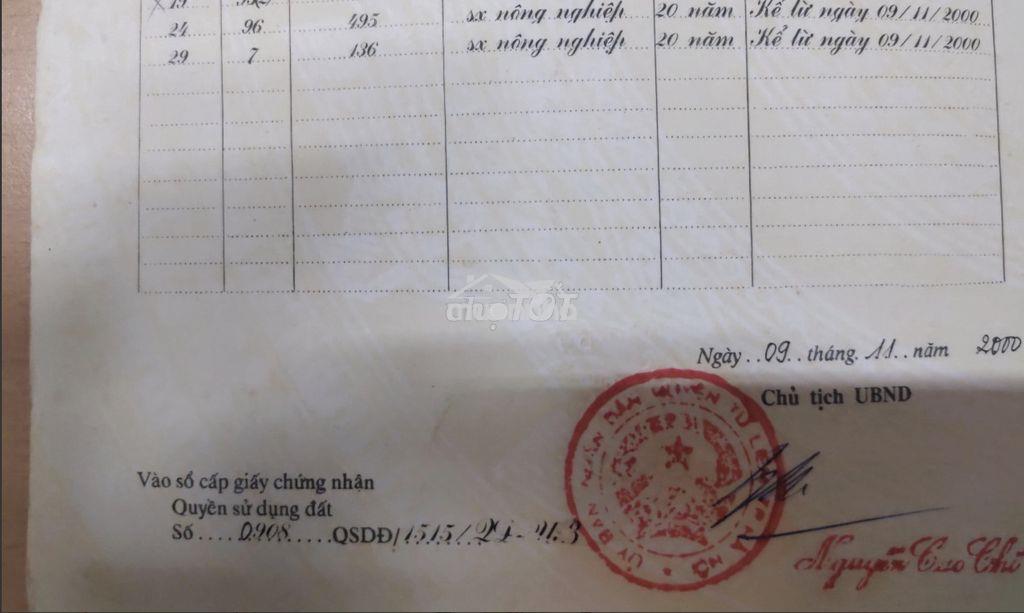 19
24 96 495 sx nông nghiệp 20 năm Kể từ ngày 09/11/2000
29 7 136 sx nông nghiệp 20 năm Kể từ ngày 09/11/2000
chợTỐT
Ngày..09..tháng.11..năm 2000
Chủ tịch UBND
ỦY BAN NHÂN DÂN HUYỆN TỪ LIÊM T.P HÀ NỘI
Vào sổ cấp giấy chứng nhận
Quyền sử dụng đất
Số....0908.....QSDĐ/1515/
Nguyễn Cao Chí